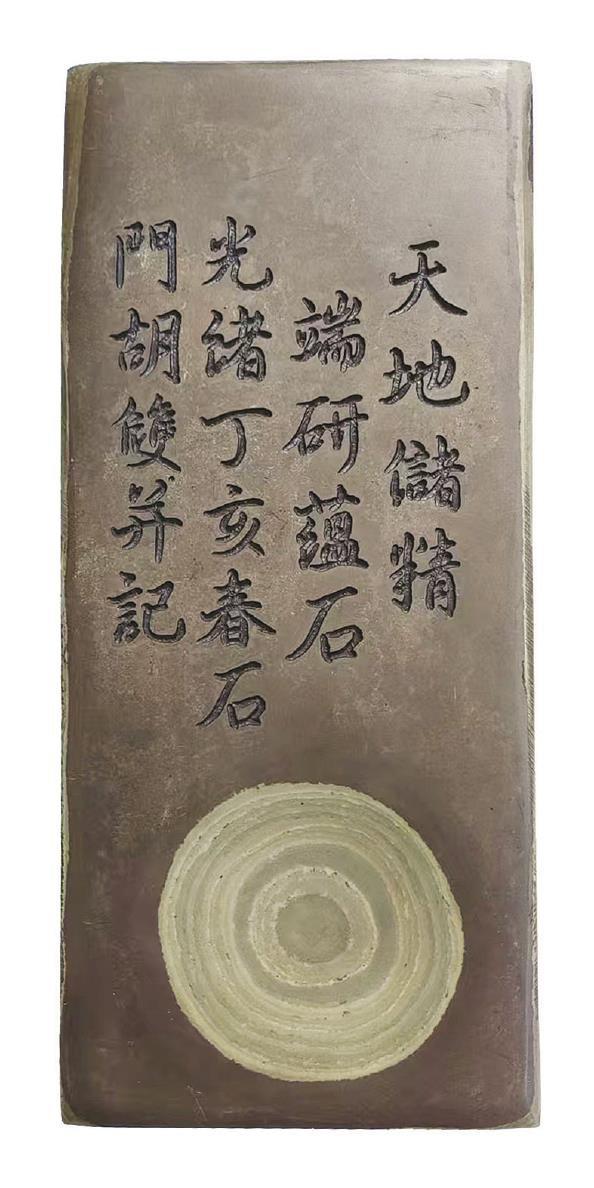 天地儲精
端研蘊石
光緒丁亥春石
門胡雙并記